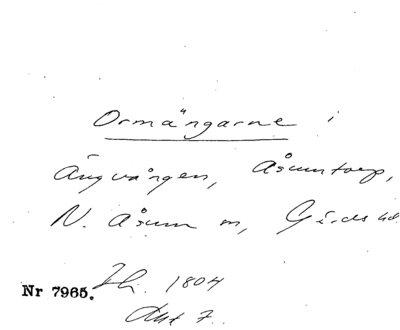 Ormängarne i
Ängvången, Åsumtorp,
N. Åsum m, Gärds hd.
Nr 7965. Th. 1804
Akt 7.